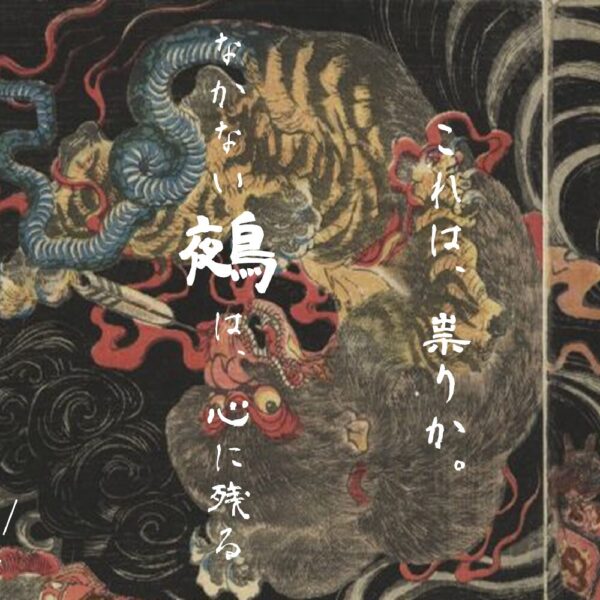 これは、祟りか。
なかない鵺は、心に残る